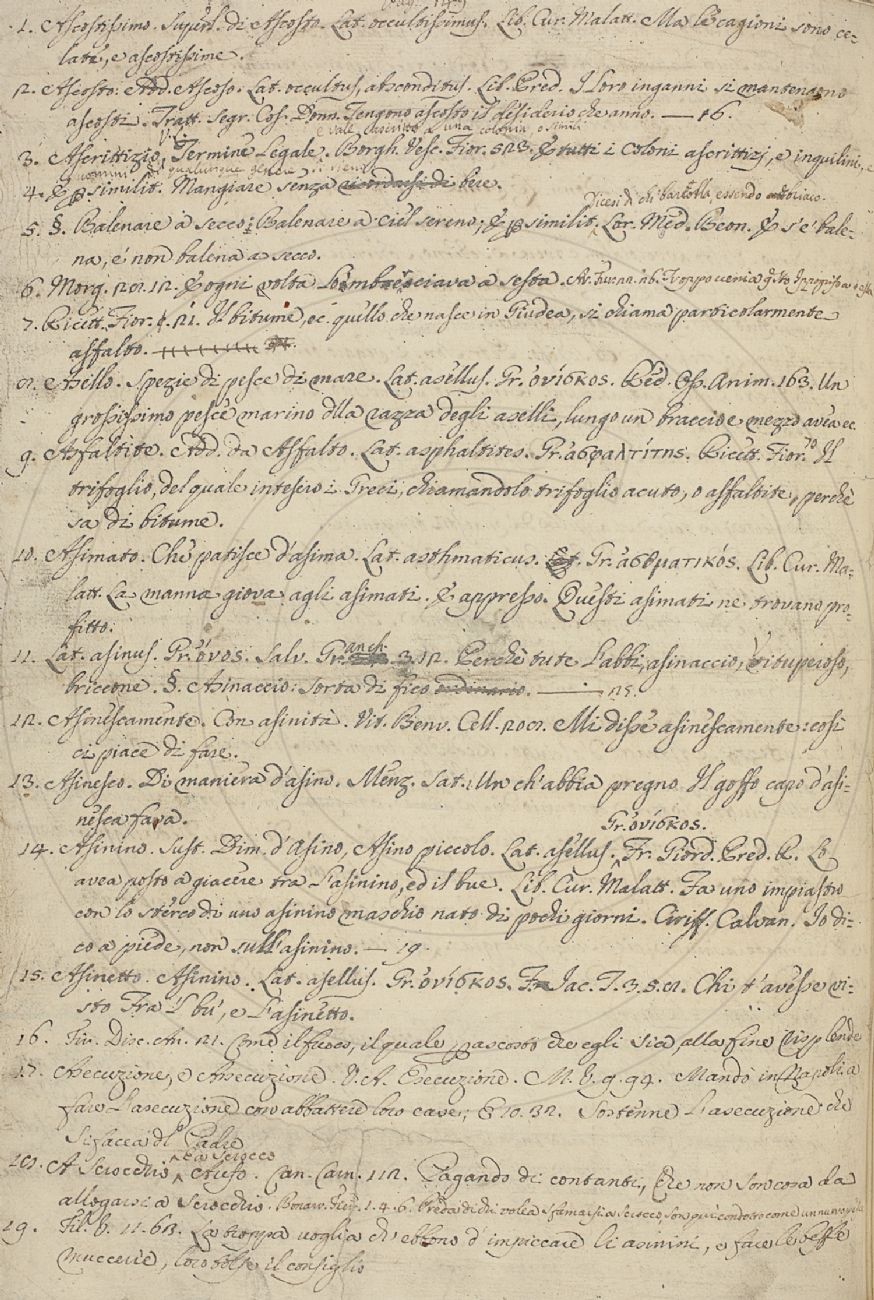 1. Ascosissimo. Superl. di Ascosto. Lat. occultissimus. Lib. Cur. Malatt. Ma le cagioni sono ce-
late, e ascosissime.
2. Ascosto. Add. Ascoso. Lat. occultus, absconditus. Lib. Pred. I loro inganni si mantengono
ascosti. Tratt. Segr. Cos. Donn. Tengono ascosto il desiderio che anno. — 16.
e vale ascritto a una colonia, o simili
3. Ascrittizio, Termine Legale. Borgh. Vesc. Fior. 523. E tutti i coloni ascrittizj, e inquilini, e
uomini di qualunque genere si sieno
4. E p similit. Mangiare senza ricordarsi di bere.
Dicesi di chi barcolla, essendo
5. §. Balenare a secco: Balenare a ciel sereno; E p similit. Lor. Med. Beon. E s'e' bale-
na, e' non balena a secco.
6. Morg. 22. 12. E ogni volta
7. Ricett. Fior. 21. Il bitume, ec. quello che nasce in Giudea, si chiama particolarmente
asfalto.
8. Asello. Spezie di pesce di mare. Lat. asellus. Gr. ὀνίσκος. Red. Oss. Anim. 163. Un
grossissimo pesce marino dlla razza degli aselli, lungo un braccio e mezzo avea ec.
9. Asfaltite. Add. da Asfalto. Lat. asphaltites. Gr. ἀσφαλτίτης. Ricett. Fior. 70 Il
trifoglio, del quale intesero i Greci, chiamandolo trifoglio acuto, o asfaltite, perchè
sa di bitume.
10. Asimato. Che patisce d'asima. Lat. asthmaticus. Gr. ἀσθματικός. Lib. Cur. Ma-
latt. La manna giova agli asimati. E appresso. Questi asimati ne trovano pro-
fitto.
11. Lat. asinus. Gr. ὄνος. Salv. Granch. 3. 12. Perchè tu te l'abbi, asinaccio, vituperoso,
briccone. §. Asinaccio: sorta di fico ordinario. — 25.
12. Asinescamente. Con asinità. Vit. Benv. Cell. 208. Mi disse asinescamente: così
ci piace di fare.
13. Asinesco. Di maniera d'asino. Menz. Sat. 1. Un ch'abbia pregno Il goffo capo d'asi-
nesca fava.
Gr. ὀνίσκος.
14. Asinino. Sust. Dim. d'Asino, Asino piccolo. Lat. asellus. Fr. Giord. Pred. R. Lo
avea posto a giacere tra l'asinino, ed il bue. Lib. Cur. Malatt. Fa uno impiastro
con lo sterco di uno asinino maschio nato di pochi giorni. Ciriff. Calvan. Io di-
co a piede, non sull'asinino. — 19.
15. Asinetto. Asinino. Lat. asellus. Gr. ὀνίσκος. Fr. Jac. T. 3. 5. 8. Chi t'avesse vi-
sto Fra 'l bu', e l'asinetto.
16. Fir. Disc. An. 21. Come il fuoco, il quale, nascosto che egli sia, alla fine risplende
17. Asecuzione, e Assecuzione. V. A. Esecuzione. M. V. 9. 99. Mandò in Napoli a
fare l'asecuzione con abbattere loro case; E 10. 32. Sostenne l'asecuzione che
si facea dl Padre
e a Sciocco
18. A Sciocchio Aufo. Can. Carn. 112. Pagando di contanti, Che non son cosa da
allogarsi a Sciocchio.
19. Fil. V. 11. 63. La troppa voglia ch'ebbono d'impiccare li asinini, e fare le beffe
mucerie, loro tolse il consiglio